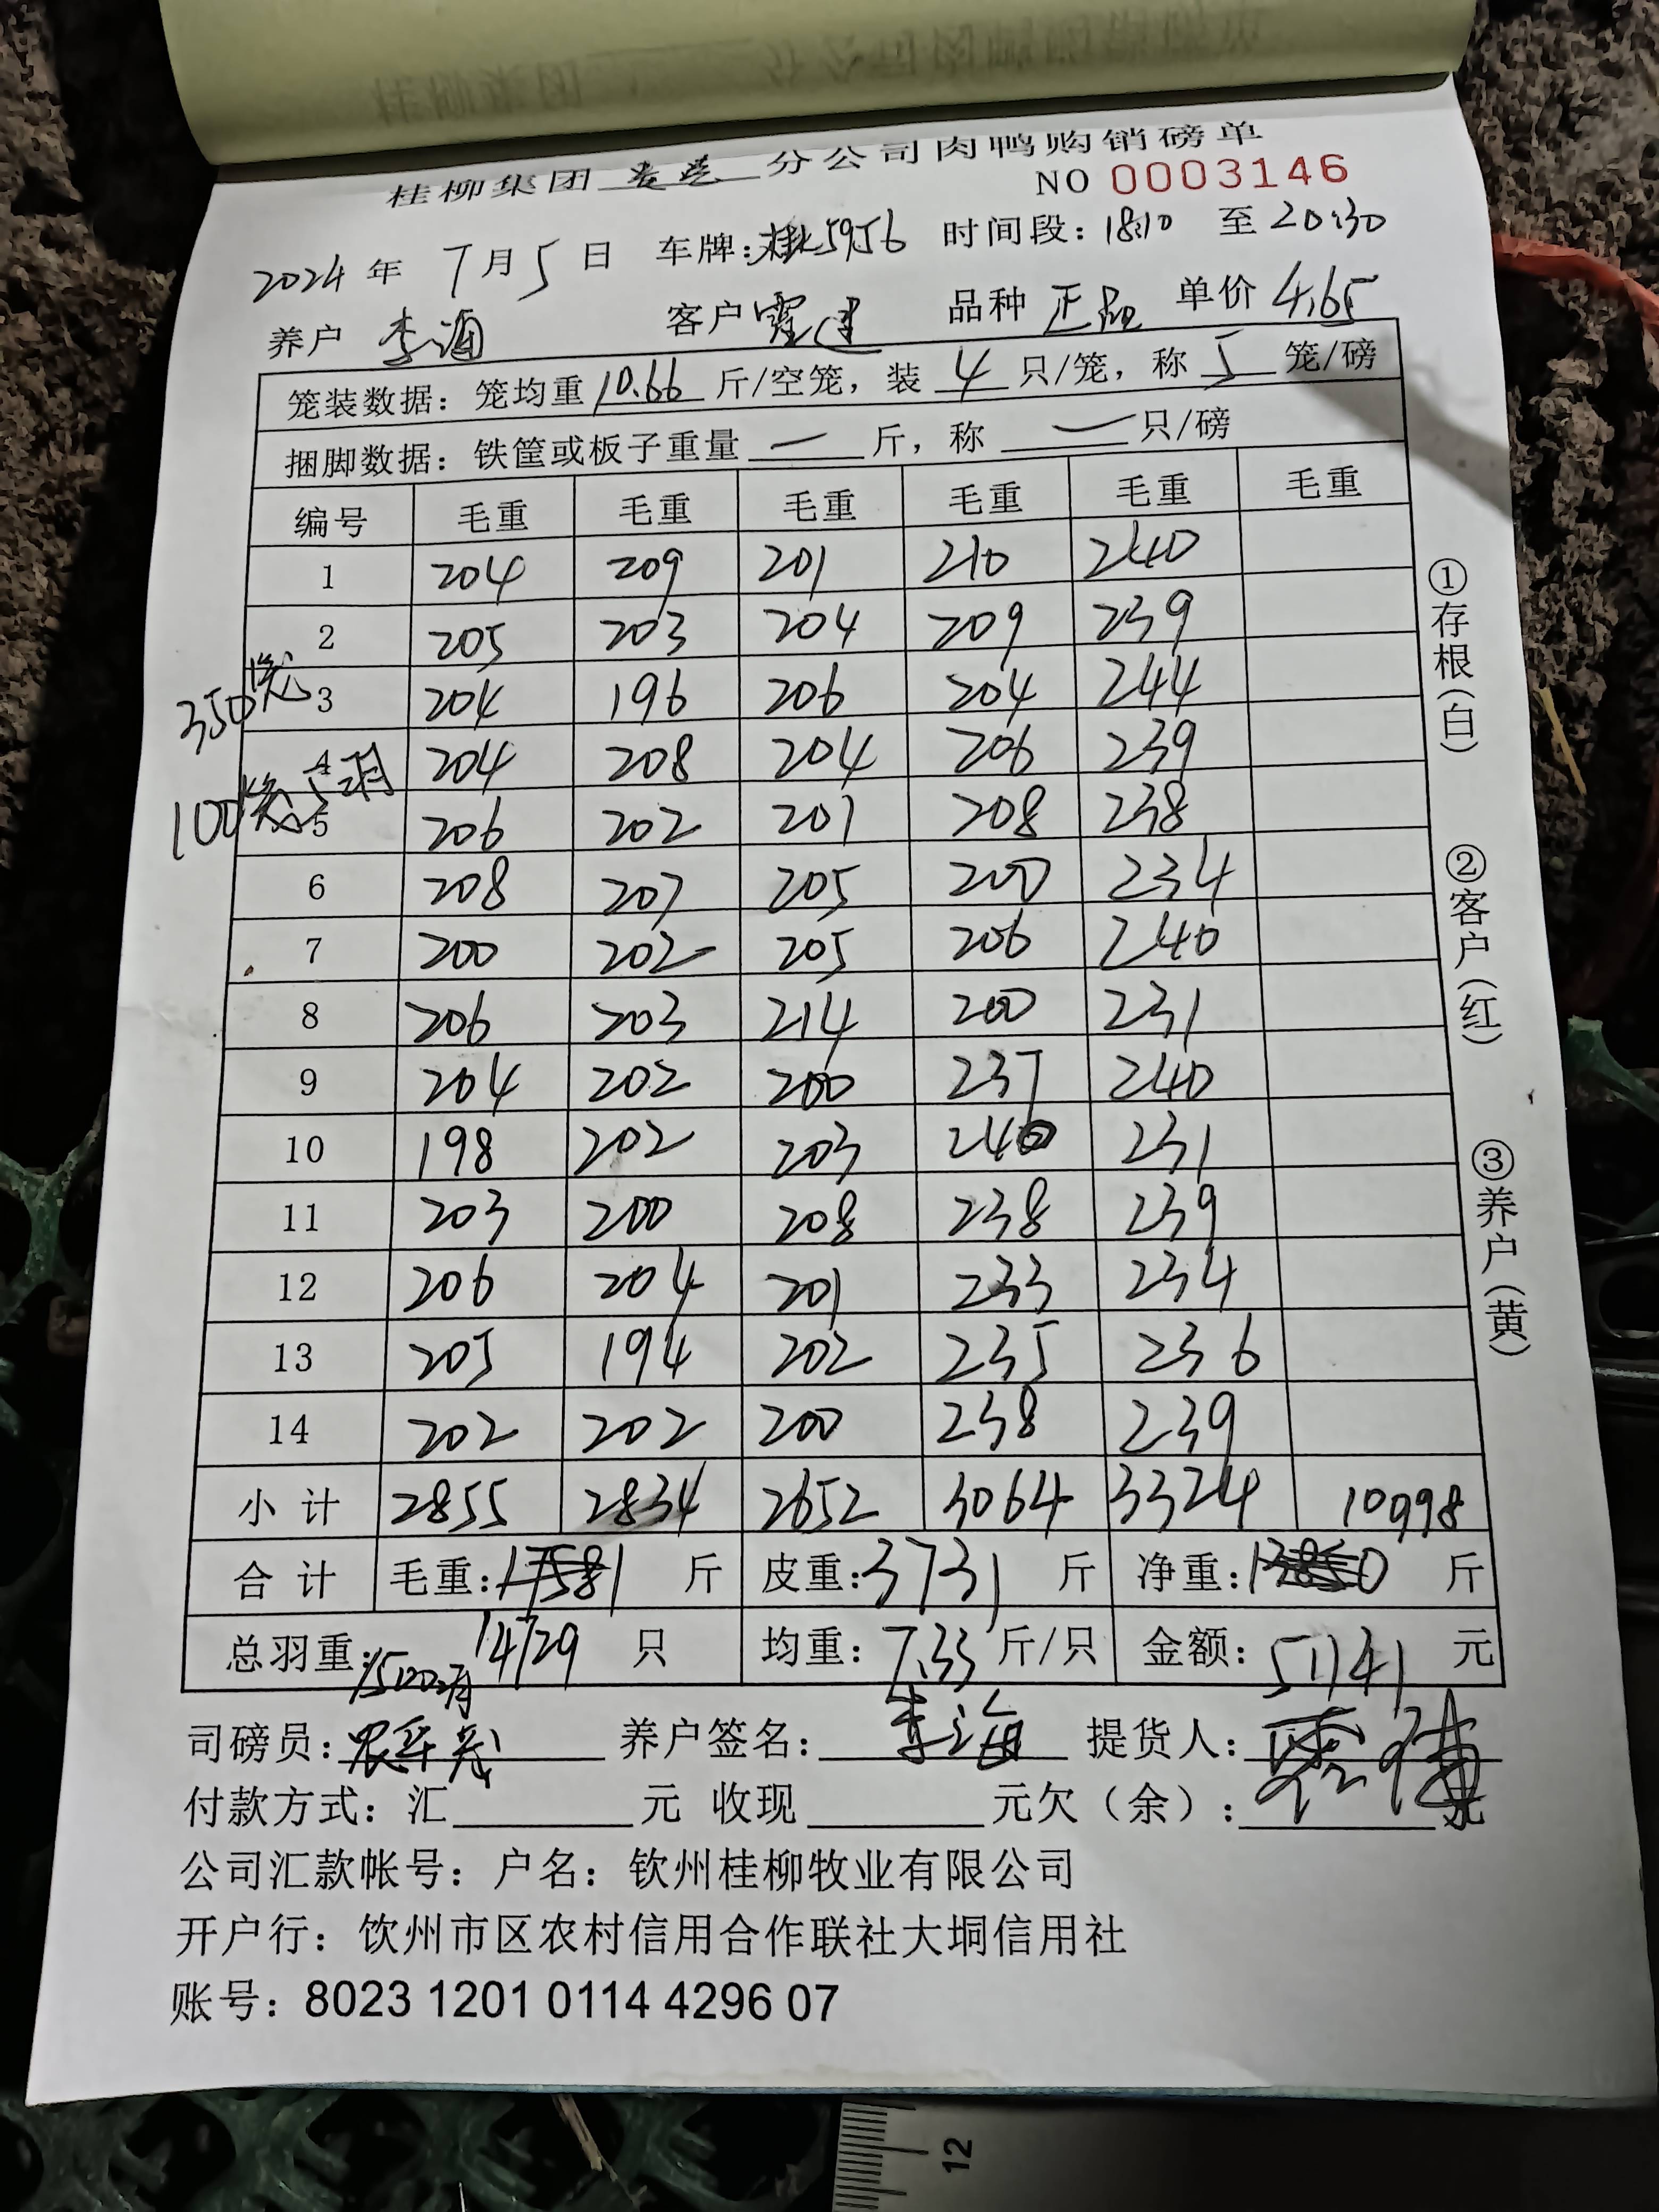 桂柳集团 分公司肉鸭购销磅单
NO 0003146
2024年 7月5日 车牌:桂L5956 时间段:18:10 至 20:30
养户 李海 客户 品种 正品 单价 4.65
笼装数据:笼均重 10.66 斤/空笼,装 4 只/笼,称 5 笼/磅
捆脚数据:铁筐或板子重量 一 斤,称 一 只/磅
编号 毛重 毛重 毛重 毛重 毛重 毛重
1 204 209 201 210 240
2 205 203 204 209 239
350笼
3 204 196 206 204 244
4 204 208 204 206 239
100笼 5羽
5 206 202 201 208 238
6 208 207 205 200 234
7 200 202 205 206 240
8 206 203 214 200 231
9 204 202 200 237 240
10 198 202 203 240 231
11 203 200 208 238 239
12 206 204 201 233 234
13 205 194 202 235 236
14 202 202 200 238 239
小计 2855 2834 2652 3064 3324 10998
合计 毛重: 斤 皮重:3731 斤 净重: 斤
总羽重:1500羽 14729 只 均重:7.33 斤/只 金额:51141 元
司磅员: 养户签名:李海 提货人:
付款方式:汇 元 收现 元欠(余): 元
公司汇款帐号:户名:钦州桂柳牧业有限公司
开户行:饮州市区农村信用合作联社大垌信用社
账号:8023 1201 0114 4296 07
①存根(白)
②客户(红)
③养户(黄)
12